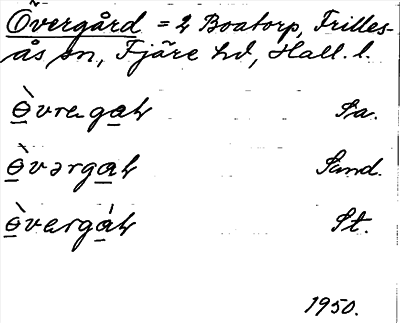 Övergård = 2 Boatorp, Frilles-
ås sn, Fjäre hd, Hall. l.
ɵ̀vregaɫ Sa.
ɵ̀vərgaɫ Sand.
ɵ̀vərgáɫ St.
1950.